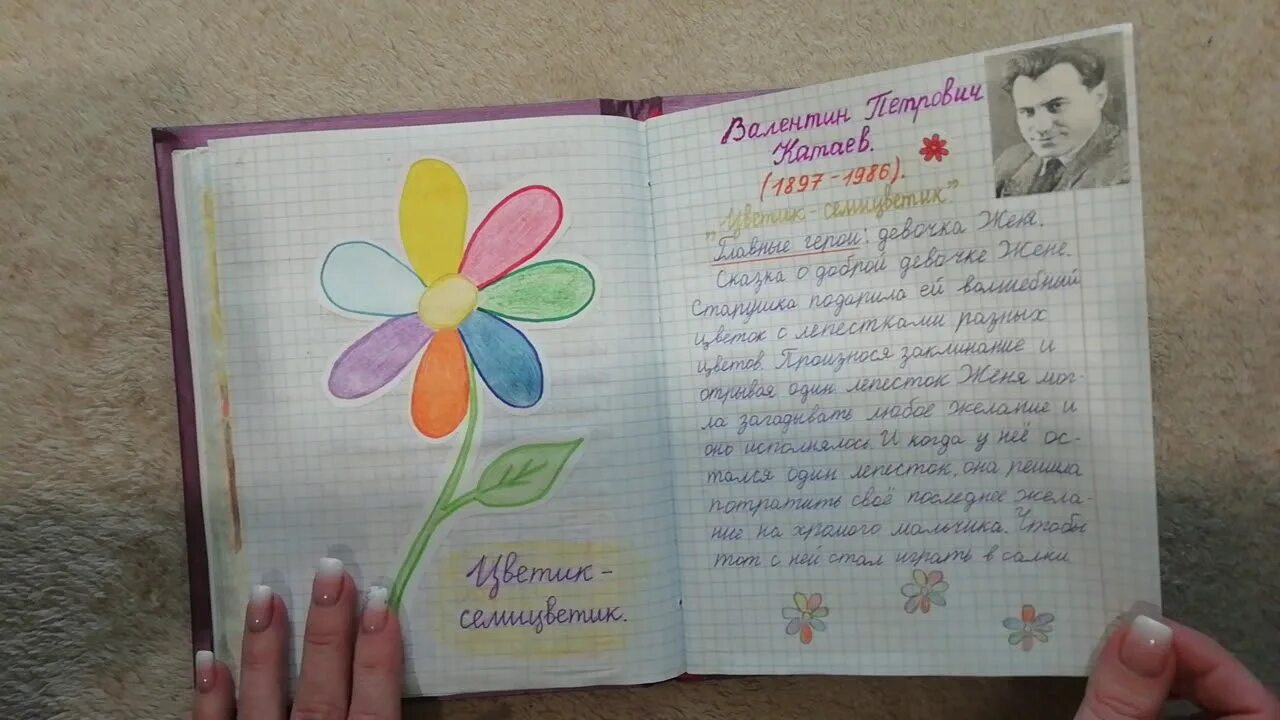 Цветик-
семицветик.
Валентин Петрович
Катаев.
(1897-1986).
„Цветик-семицветик"
Главные герои: девочка Женя.
Сказка о доброй девочке Жене.
Старушка подарила ей волшебный
цветок с лепестками разных
цветов. Произнося заклинание и
отрывая один лепесток Женя мог-
ла загадывать любое желание и
оно исполнялось. И когда у неё ос-
тался один лепесток, она решила
потратить своё последнее жела-
ние на хромого мальчика. Чтобы
тот с ней стал играть в салки